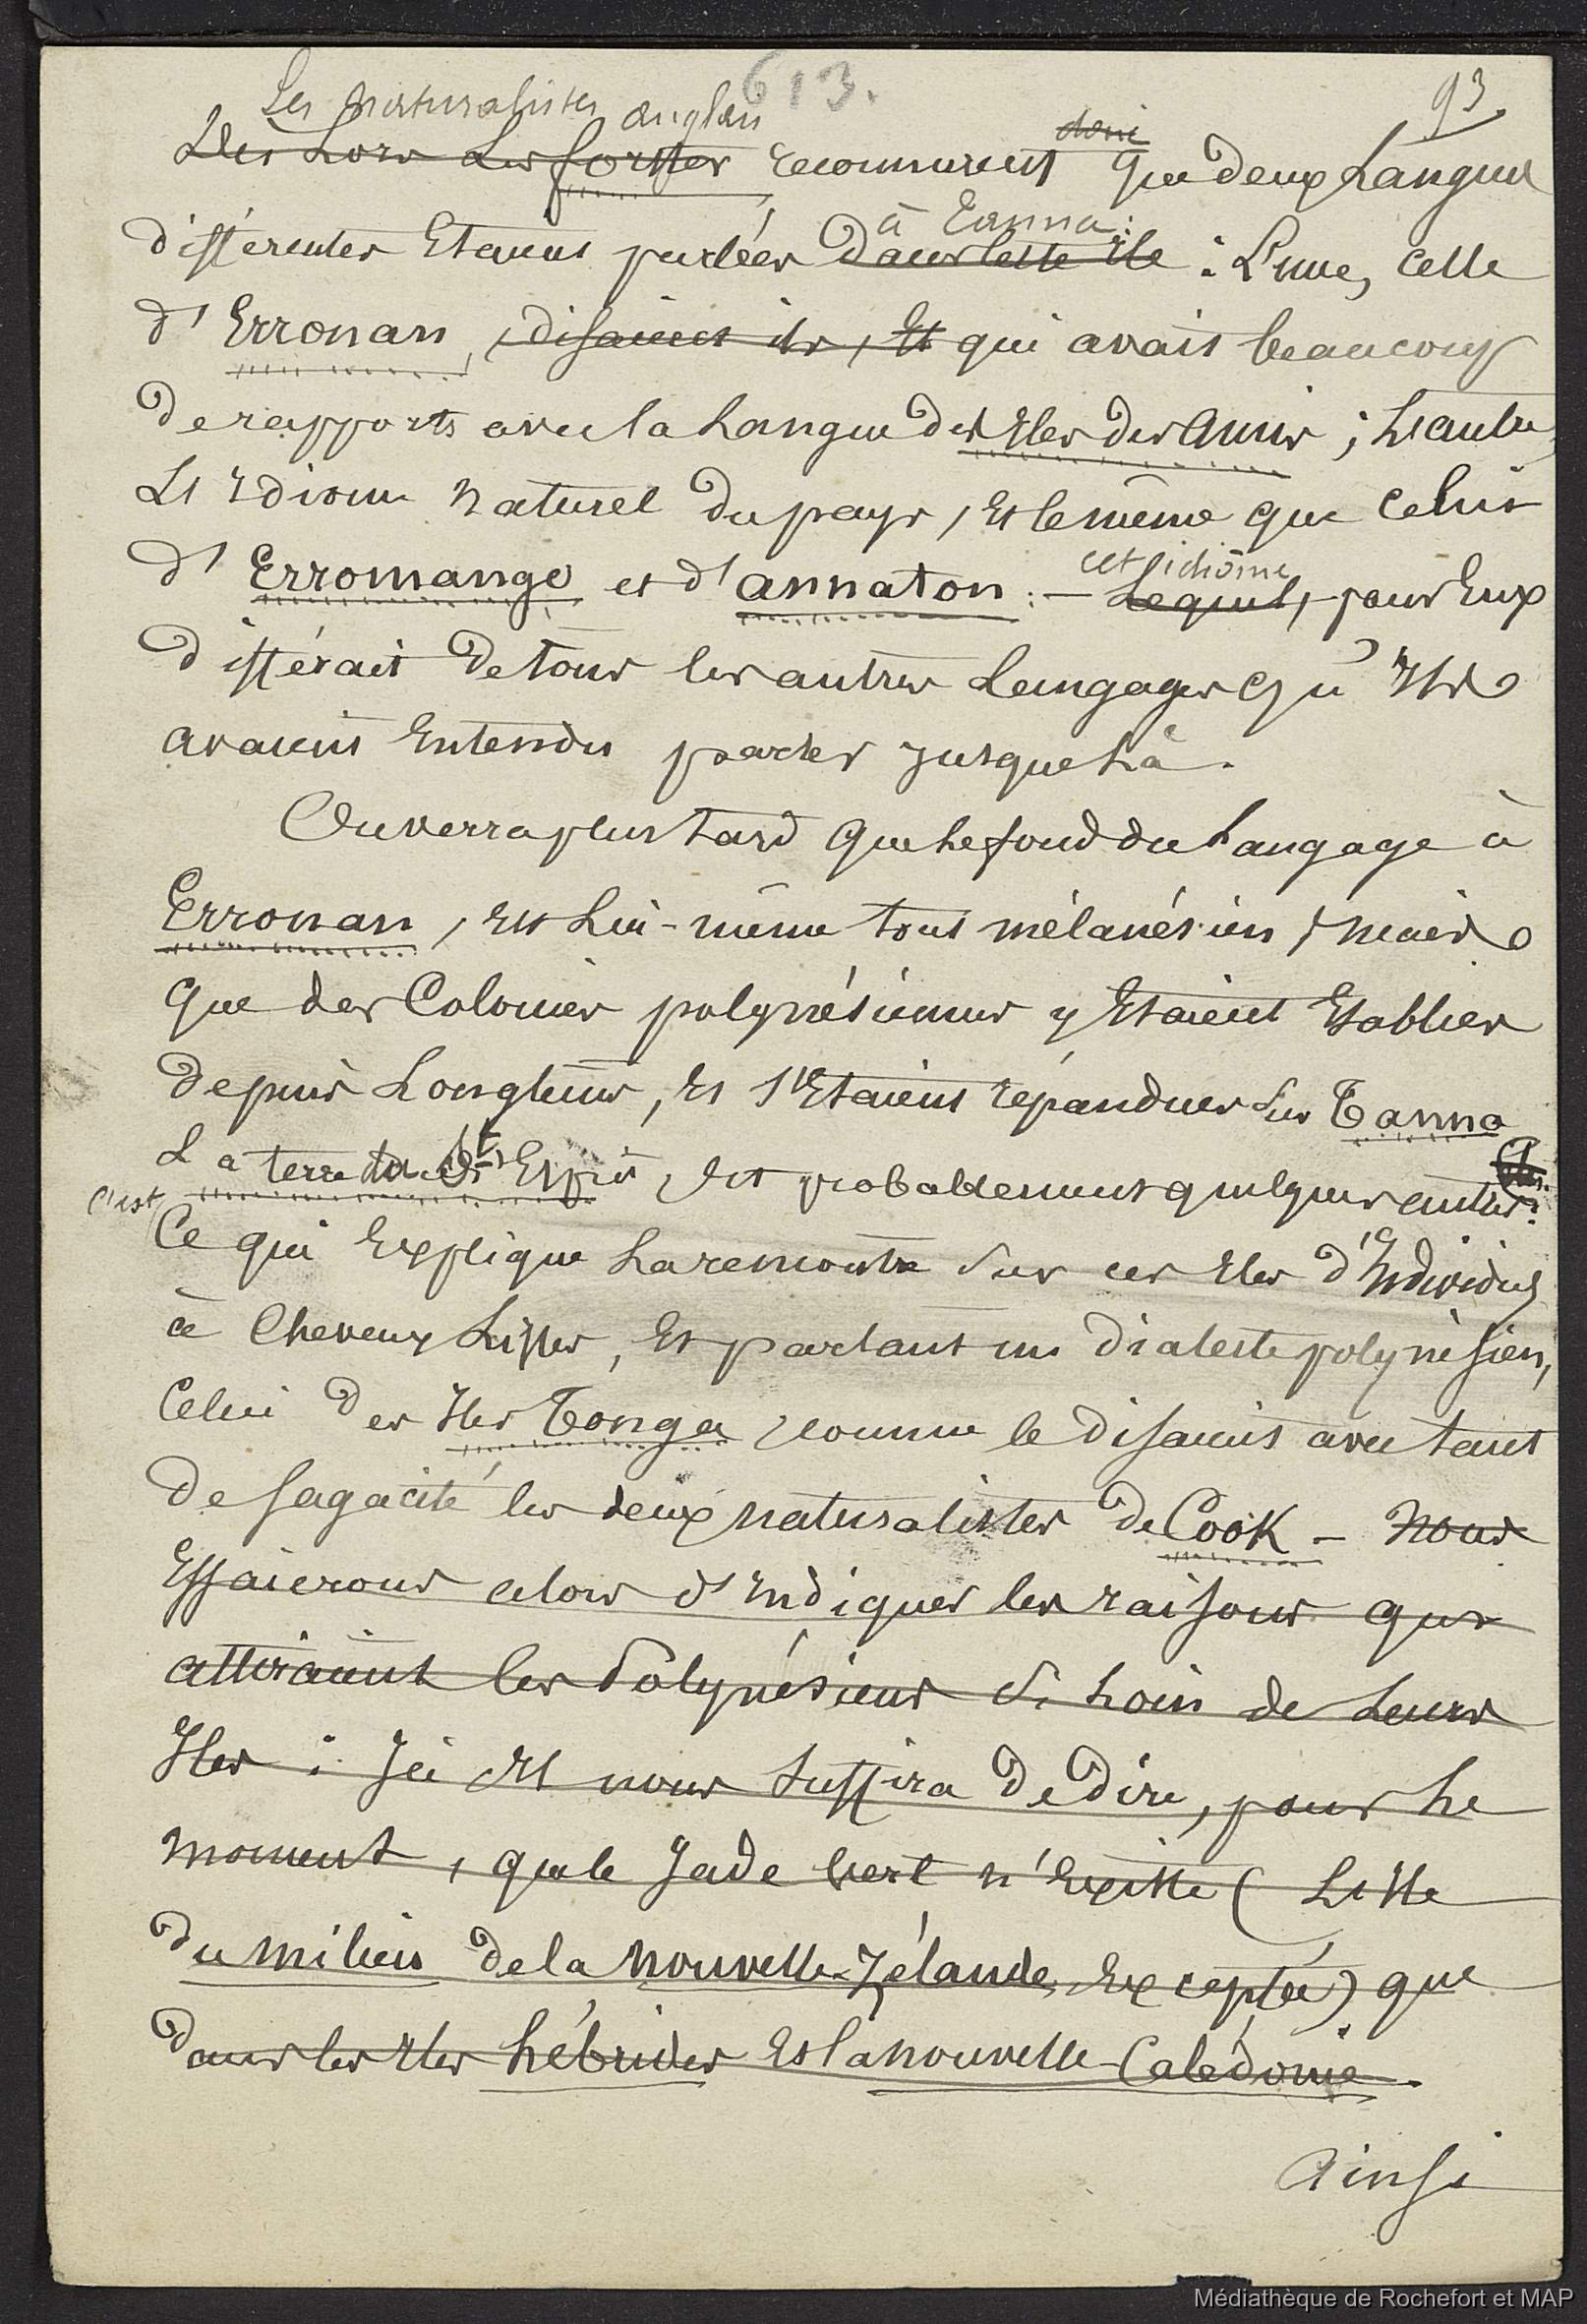 613.
93
Les naturalistes anglais
Dès Lors Les forster reconnurent donc que deux Langues
à Tanna :
différentes Etaient parlées dans cette Ile : L'une, celle
d'Erronan, disaient ils, Et qui avait beaucoup
de rapports avec la Langue des Iles des Amis ; L'autre,
L'Idiome naturel du pays, Et le même que celui
cet idiôme
d'Erromango et d'annatom : — Lequel, pour Eux
différait de tous les autres Langages qu'Ils
avaient Entendu parler jusque Là.
On verra plus tard que Le fond du Langage à
Erronan, Est Lui-même tout mélanésien, mais
que des Colonies polynésiennes y Etaient Etablies
depuis Longtems, Et s'Etaient répandues sur Tanna
La terre du St Esprit, Et probablement quelques autres.
c'est
Ce qui Explique La rencontre sur ces Iles d'Individus
à Cheveux Lisses, Et parlant un dialecte polynésien,
Celui des Iles Tonga, comme le disaient avec tant
de sagacité les deux naturalistes de Cook — Nous
Essaierons alors d'Indiquer les raisons qui
attiraient les Polynésiens si Loin de Leurs
Iles : Ici Il nous suffira de dire, pour Le
moment, que le Jade vert n'Existe ( L'Ile
du milieu de la Nouvelle-Zélande Exceptée) que
dans les Iles hébrides Et la nouvelle-Calédonie.
Ainsi
Médiathèque de Rochefort et MAP